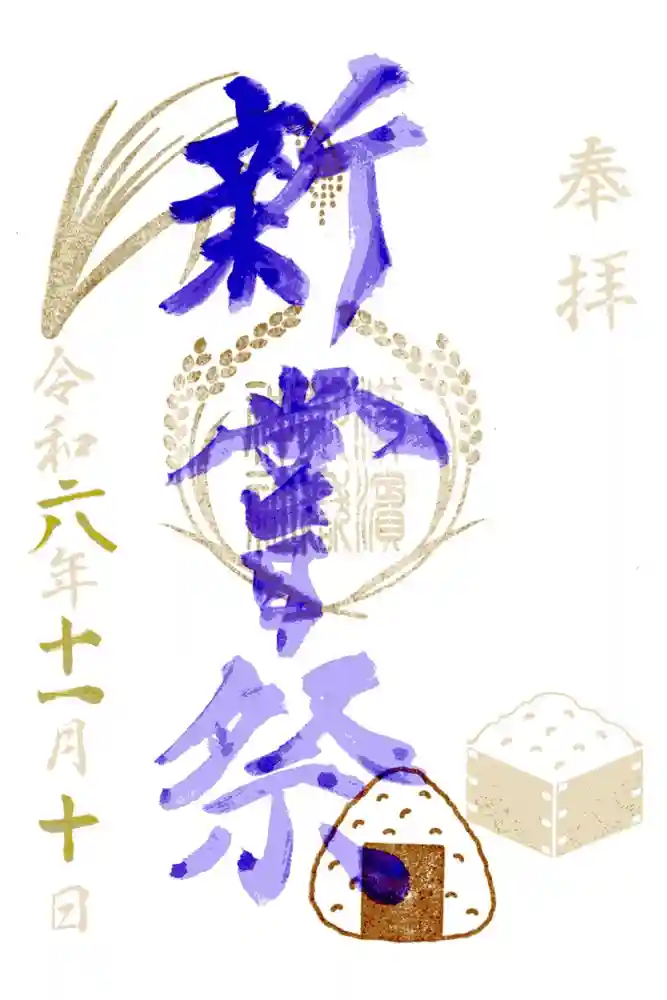 奉拝
新嘗祭
令和六年十一月十日